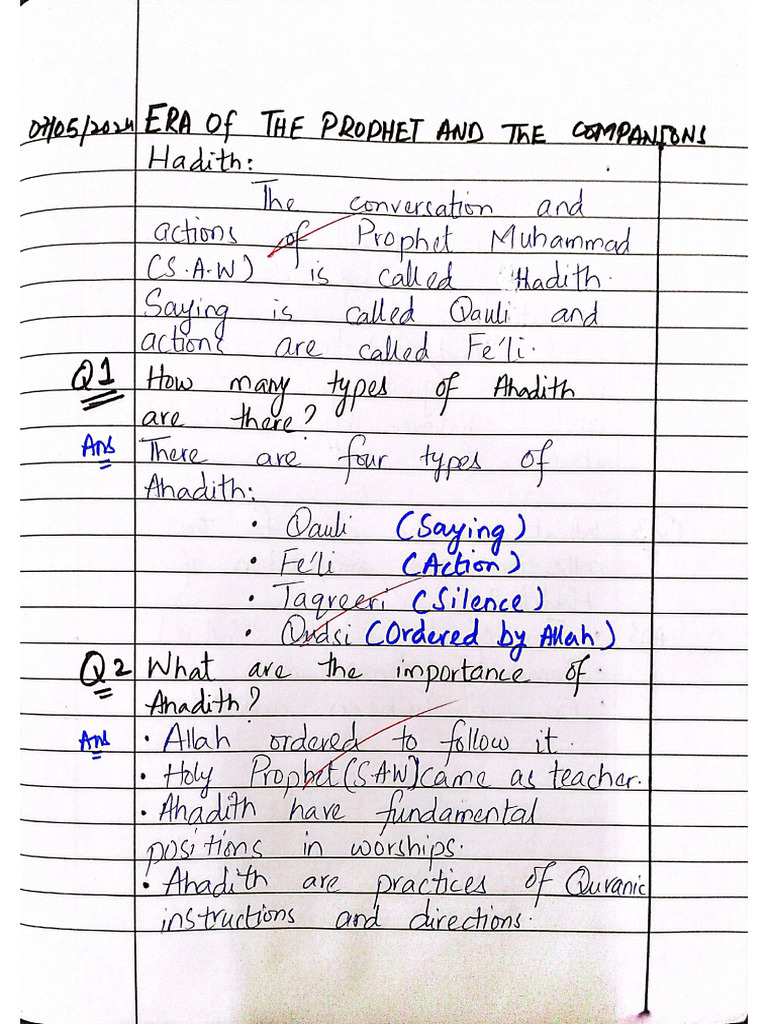 07/05/2024 ERA Of THE PROPHET AND THE COMPANIONS
Hadith:
The conversation and
actions of Prophet Muhammad
(S.A.W) is called Hadith.
Saying is called Qauli and
actions are called Fe'li.
Q1 How many types of Ahadith
are there?
Ans There are four types of
Ahadith:
• Qauli (Saying)
• Fe'li (Action)
• Taqreeri (Silence)
• Qudsi (Ordered by Allah)
Q2 What are the importance of
Ahadith?
Ans • Allah ordered to follow it.
• Holy Prophet (S.A.W) came as teacher.
• Ahadith have fundamental
positions in worships.
• Ahadith are practices of Quranic
instructions and directions.